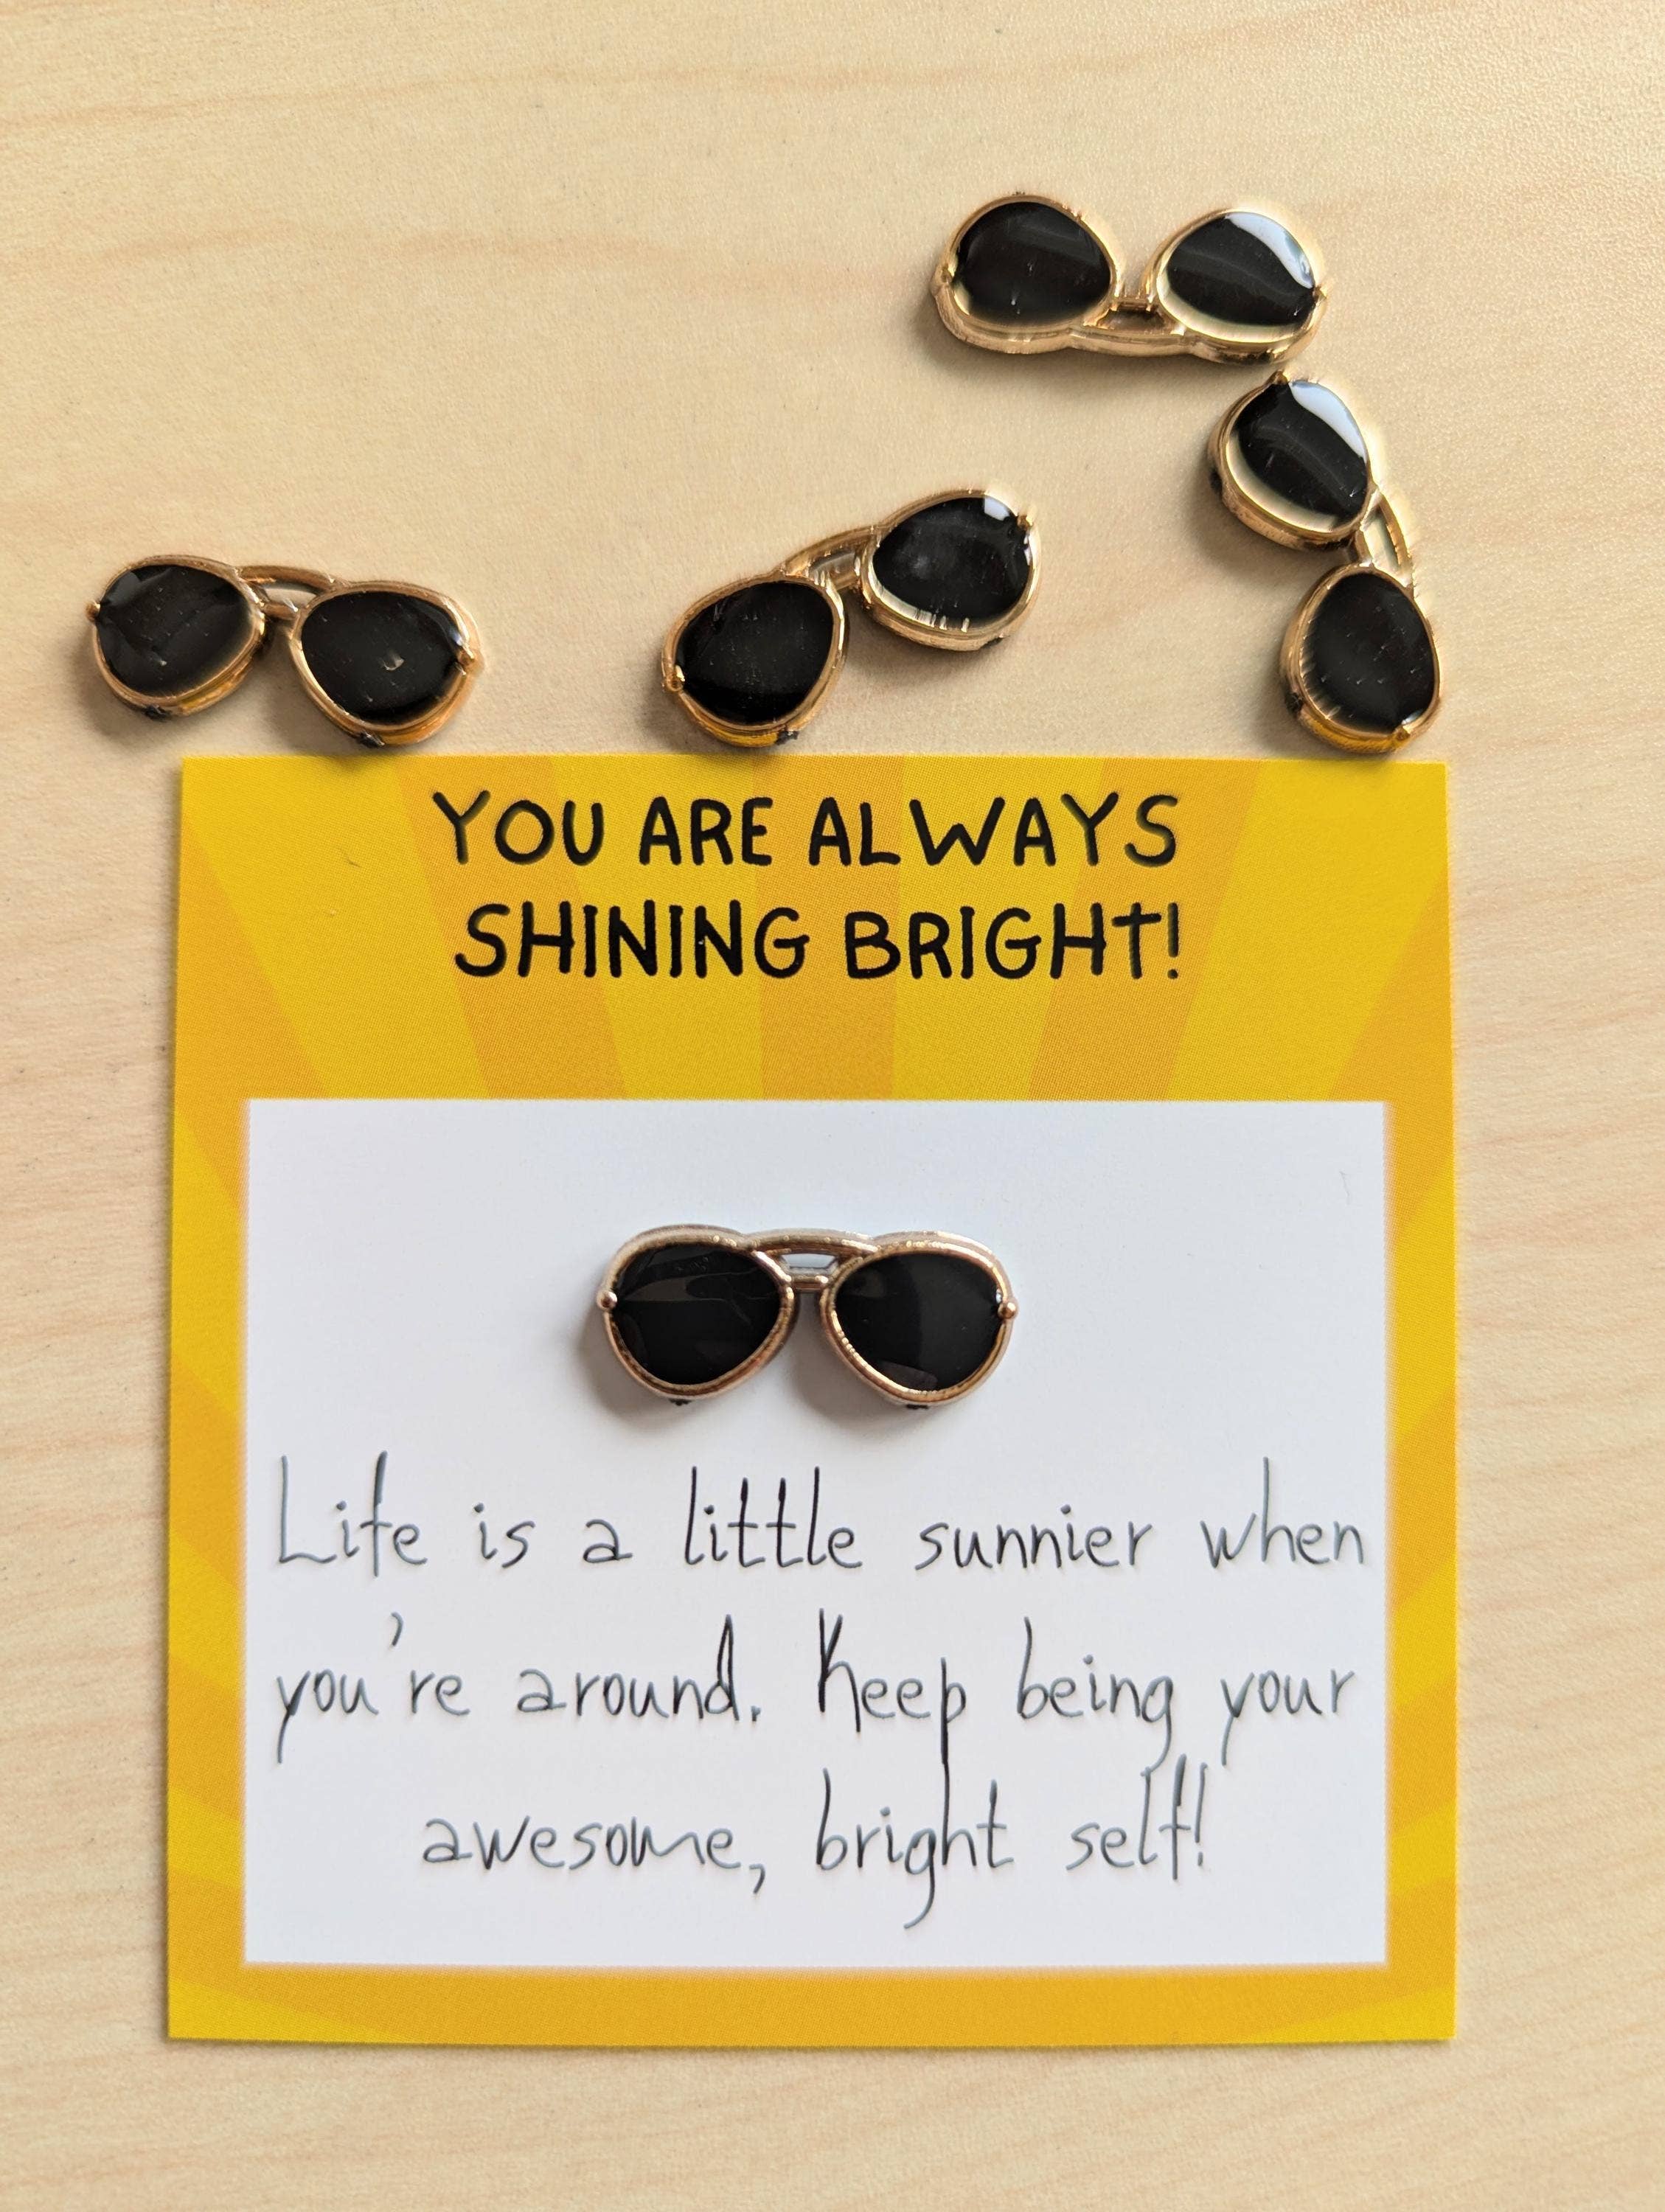 YOU ARE ALWAYS
SHINING BRIGHT!
Life is a little sunnier when
you're around. Keep being your
awesome, bright self!